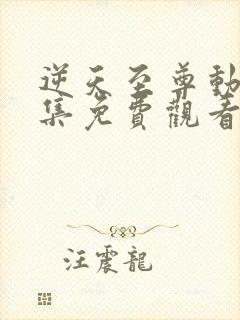 逆天至尊動
集免費觀看
汪震龍